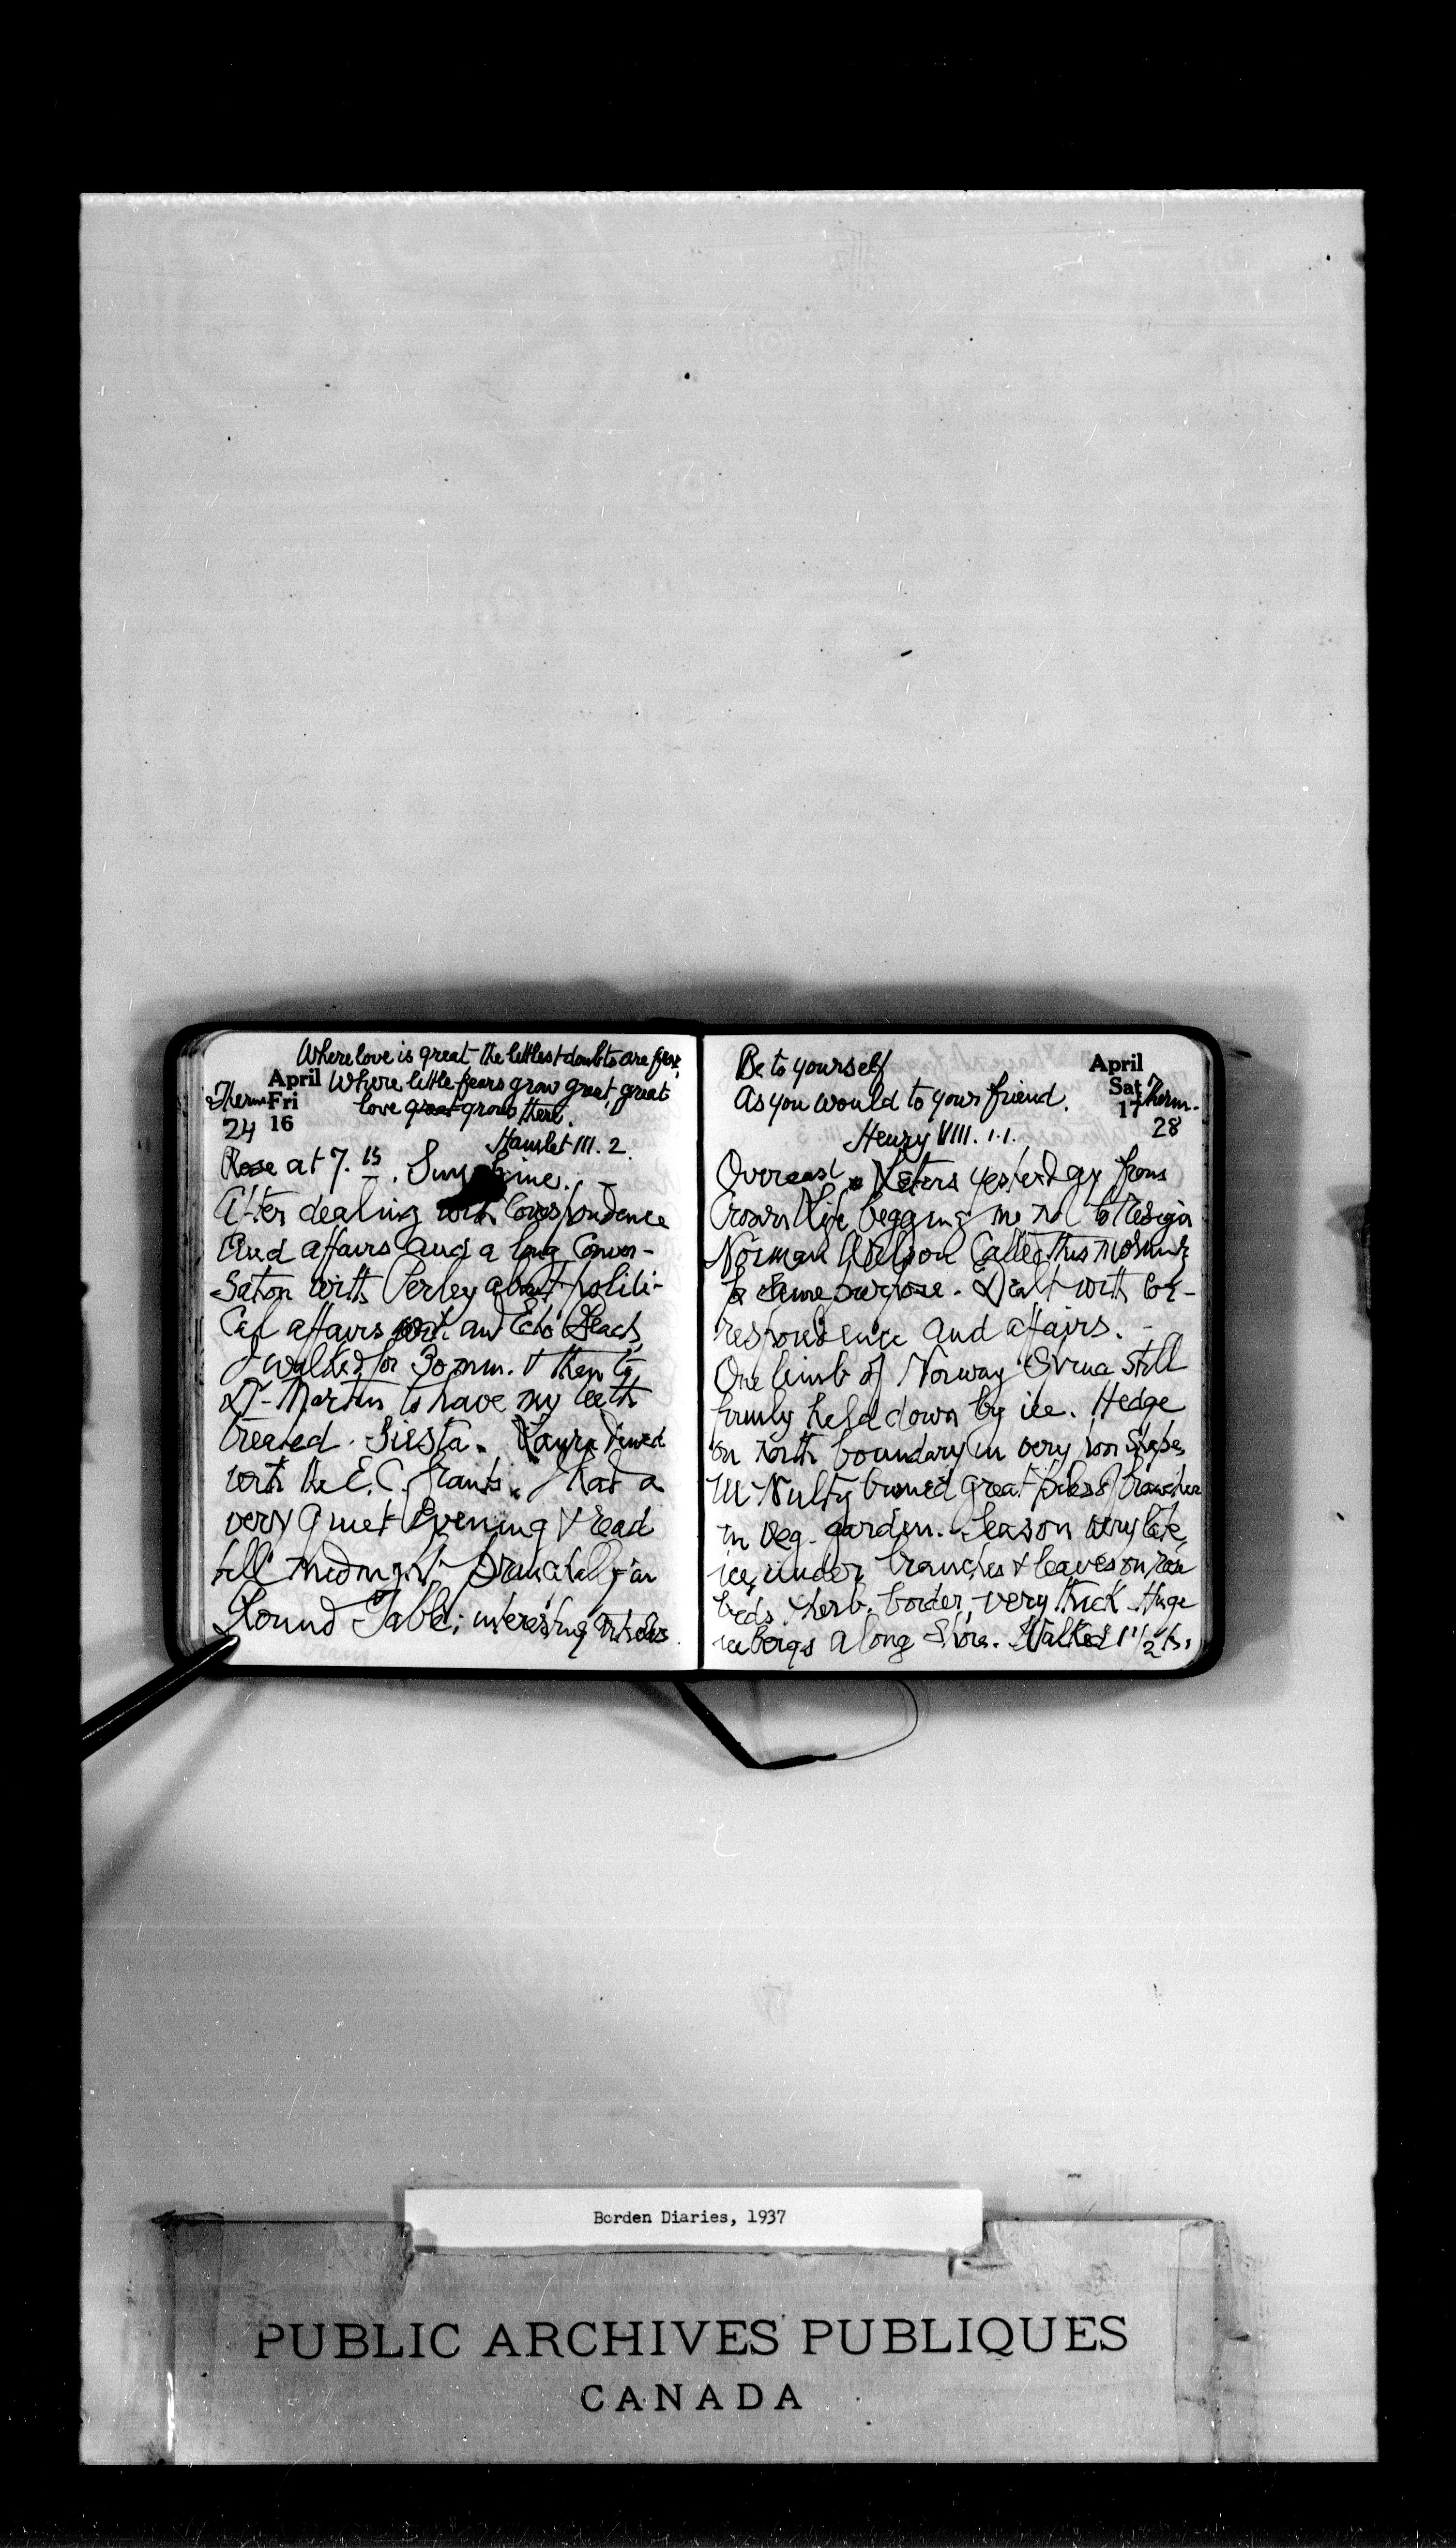 Where love is great the littlest doubts are fear,
April Where little fears grow great, great
Therm Fri love great grows there.
24 16 Hamlet III. 2.
Rose at 7.15. Sunshine. -
After dealing with correspondence
and affairs and a long conver-
sation with Perley about politi-
cal affairs and Echo Beach
I walked for 30 min. & then to
Dr. Martin to have my teeth
treated. Siesta. Laura dined
with the E.C. Grants. I had a
very quiet evening & read
till midnight principally in
Round Table; interesting articles.
Be to yourself
April
As you would to your friend.
Sat Therm.
17 28
Henry VIII. 1.1.
Overcast. Letters yesterday from
Crown Life begging me not to resign
Norman Wilson called this morning
for same purpose. Dealt with cor-
respondence and affairs. -
One limb of Norway Spruce still
firmly held down by ice. Hedge
on north boundary in very poor shape
McNulty burned great piles of branches
in veg. garden. Season very late,
ice under branches & leaves on rose
beds & herb. border, very thick. Huge
icebergs along shore. Walked 1 1/2 h.
Borden Diaries, 1937
PUBLIC ARCHIVES PUBLIQUES
CANADA